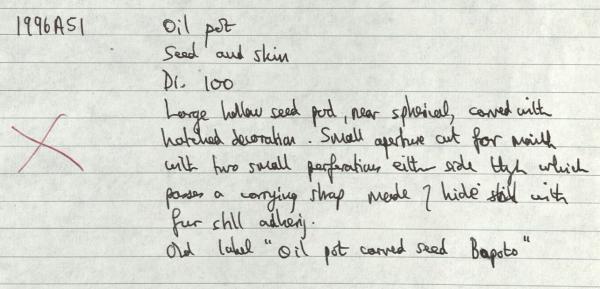 1996A51 Oil pot
Seed and skin
Di. 100
Large hollow seed pod, near spherical, carved with
hatched decoration. Small aperture cut for mouth
with two small perforations either side thgh which
passes a carrying strap made of hide with
fur still adhering.
Old label "Oil pot carved seed Bapoto"